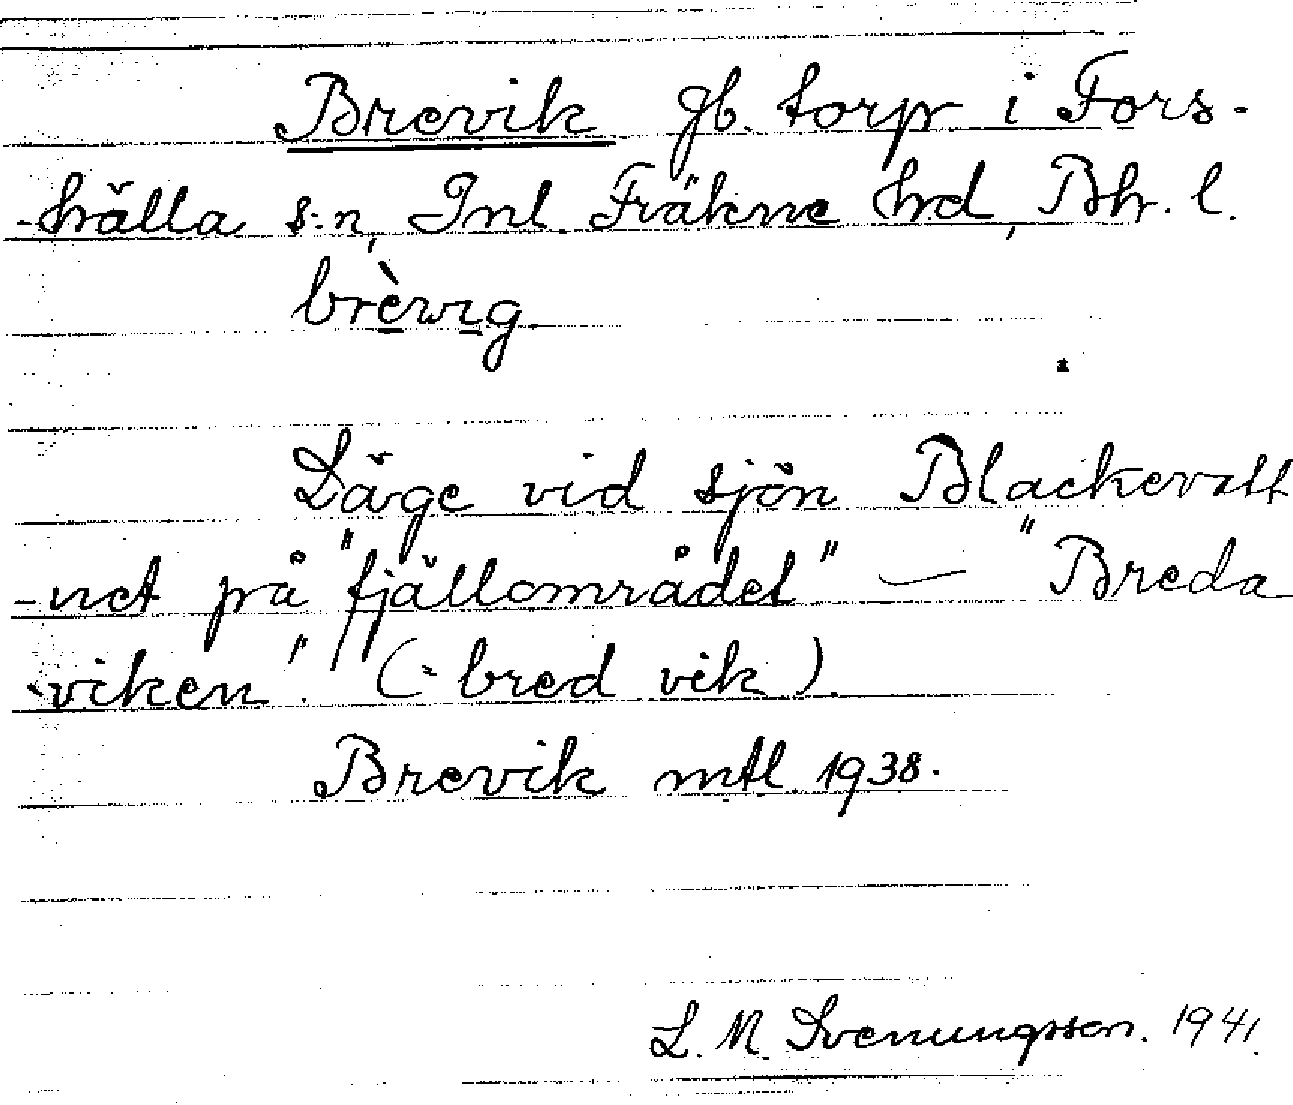 Brevik gb. torp i Fors-
-hälla s:n, Inl. Fräkne hd, Bh. l.
brèvıg
Läge vid sjön Blackevatt
-net på "fjällområdet" — "Breda
-viken". (= bred vik).
Brevik mtl 1938.
L. M. Svenungsson. 1941.